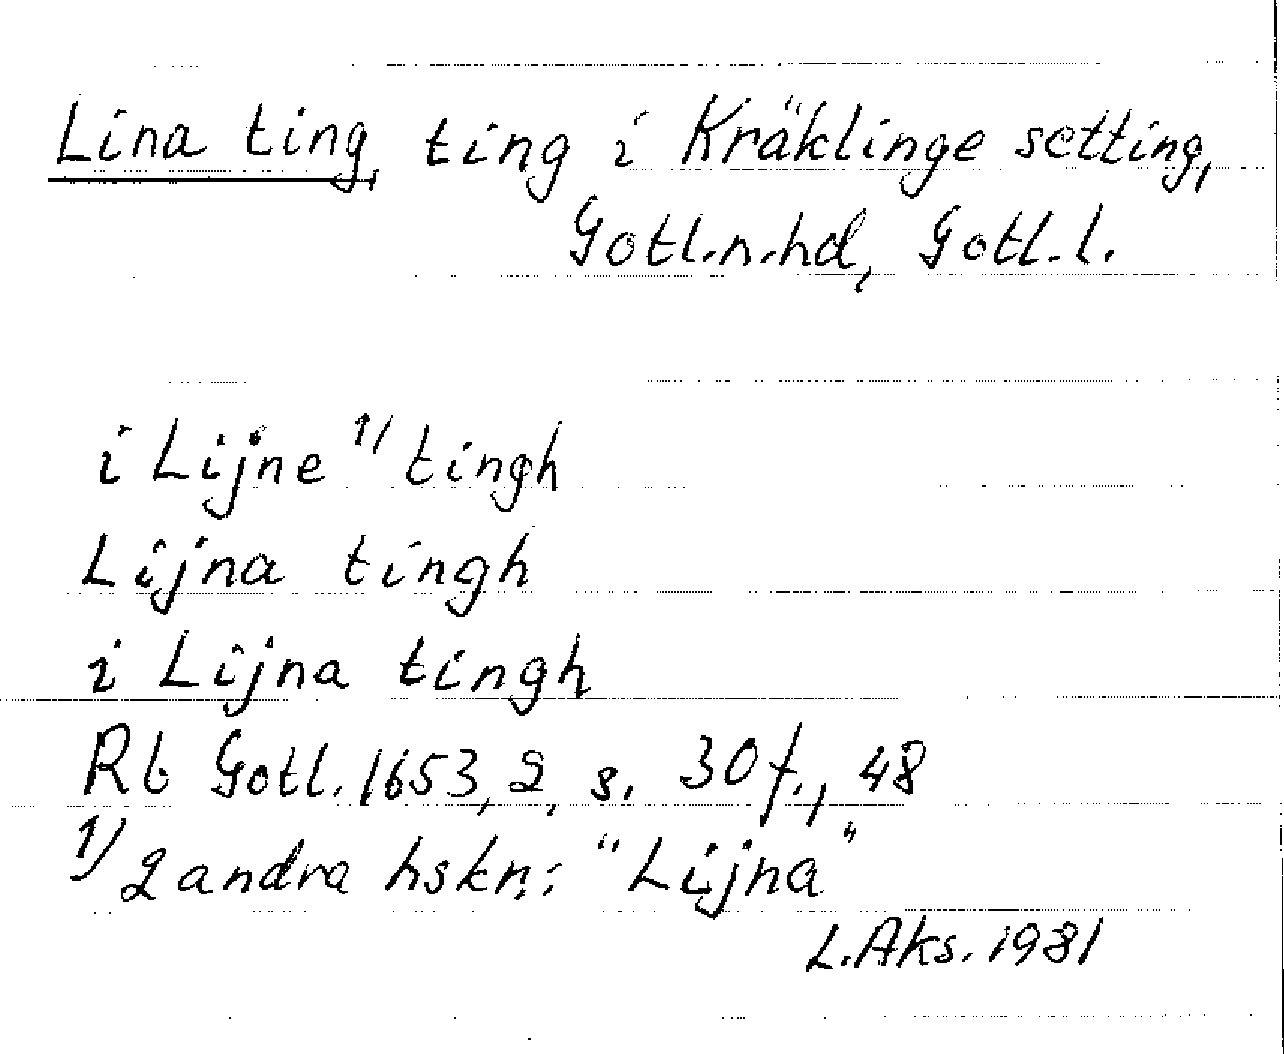 Lina ting, ting i Kräklinge setting,
Gotl.n.hd, Gotl.l.
i Lijne 1/ tingh
Lijna tingh
i Lijna tingh
Rb Gotl. 1653, 2, s. 30 f., 48
1/ 2 andra hskr.: "Lijna"
L.Aks. 1981